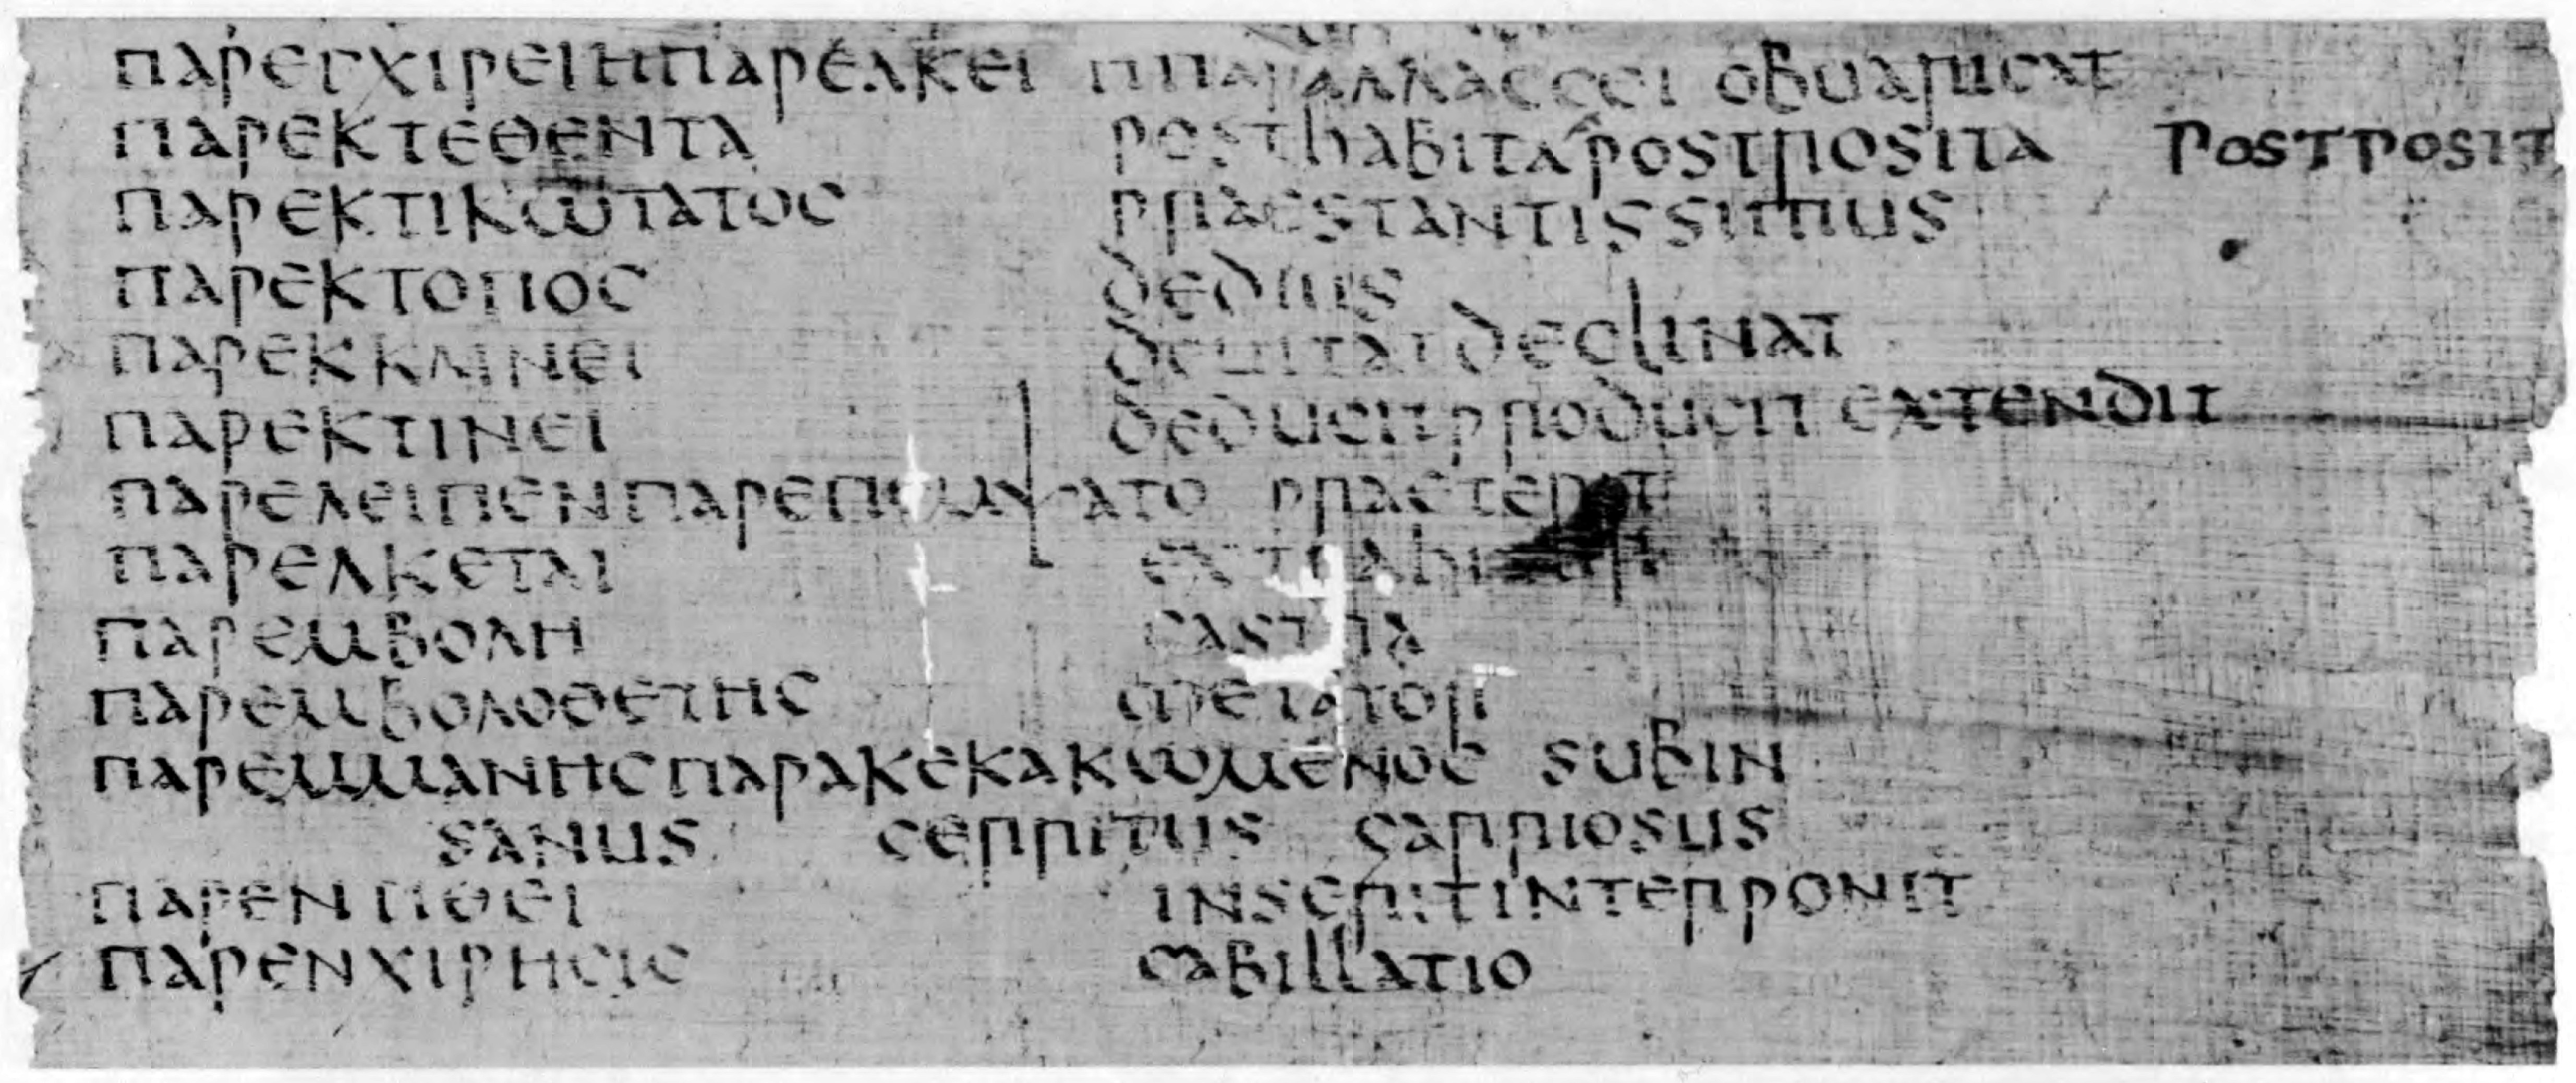 ΠΑΡΕΓΧΙΡΕΙΗΠΑΡΕΛΚΕΙ ΗΠΑΡΑΛΛΑCCΕΙ obuaricat
ΠΑΡΕΚΤΕΘΕΝΤΑ posthabita postposita postposit
ΠΑΡΕΚΤΙΚΩΤΑΤΟC praestantissimus
ΠΑΡΕΚΤΟΠΟC
ΠΑΡΕΚΚΛΙΝΕΙ deuitat declinat
ΠΑΡΕΚΤΙΝΕΙ deducit producit extendit
ΠΑΡΕΛΕΙΠΕΝ
ΠΑΡΕΛΚΕΤΑΙ
ΠΑΡΕΜΒΟΛΗ castra
ΠΑΡΕΜΒΟΛΟΘΕΤΗC metator
ΠΑΡΕΜΜΑΝΗCΠΑΡΑΚΕΚΑΚΩΜΕΝΟC subin
sanus cerritus carriosus
ΠΑΡΕΝΤΙΘΕΙ inserit interponit
ΠΑΡΕΝΧΙΡΗCΙC cabillatio